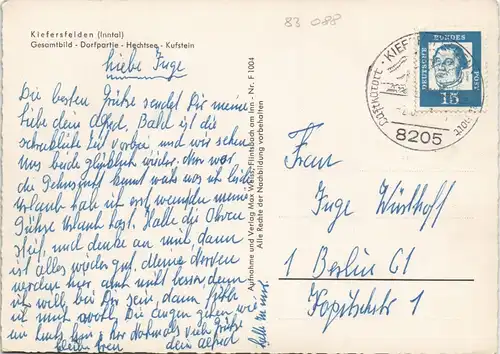 83 088
Kiefersfelden (Inntal)
Gesamtbild - Dorfpartie - Hechtsee - Kufstein
Liebe Inge
Die besten Grüße sendet Dir meine
liebe dein Alfred. Bald ist die
schreckliche Zeit vorbei, und wir sehen
uns beide glücklich wieder. Wer war
die Sehnsucht kennt weiß was ich leide
Urlaub habe ich erst wenn du meine
Grüße Urlaub hast. Halte die Ohren
steif, und denke an mich, dann
ist alles wieder gut. Meine Nerven
werden hier, nicht besser, denn
ich will bei Dir sein, dann fühle
ich mich wohl. Die Augen gehen
Nochmals viele Grüße
bleibe treu dein Alfred
Aufnahme und Verlag Max Weiss, Flintsbach am Inn - Nr. F 1004
Alle Rechte der Nachbildung vorbehalten
DEUTSCHE BUNDESPOST
15
KIEFERSFELDEN
8205
Frau
Inge Wüsthoff
1 Berlin 61
Kopischstr 1